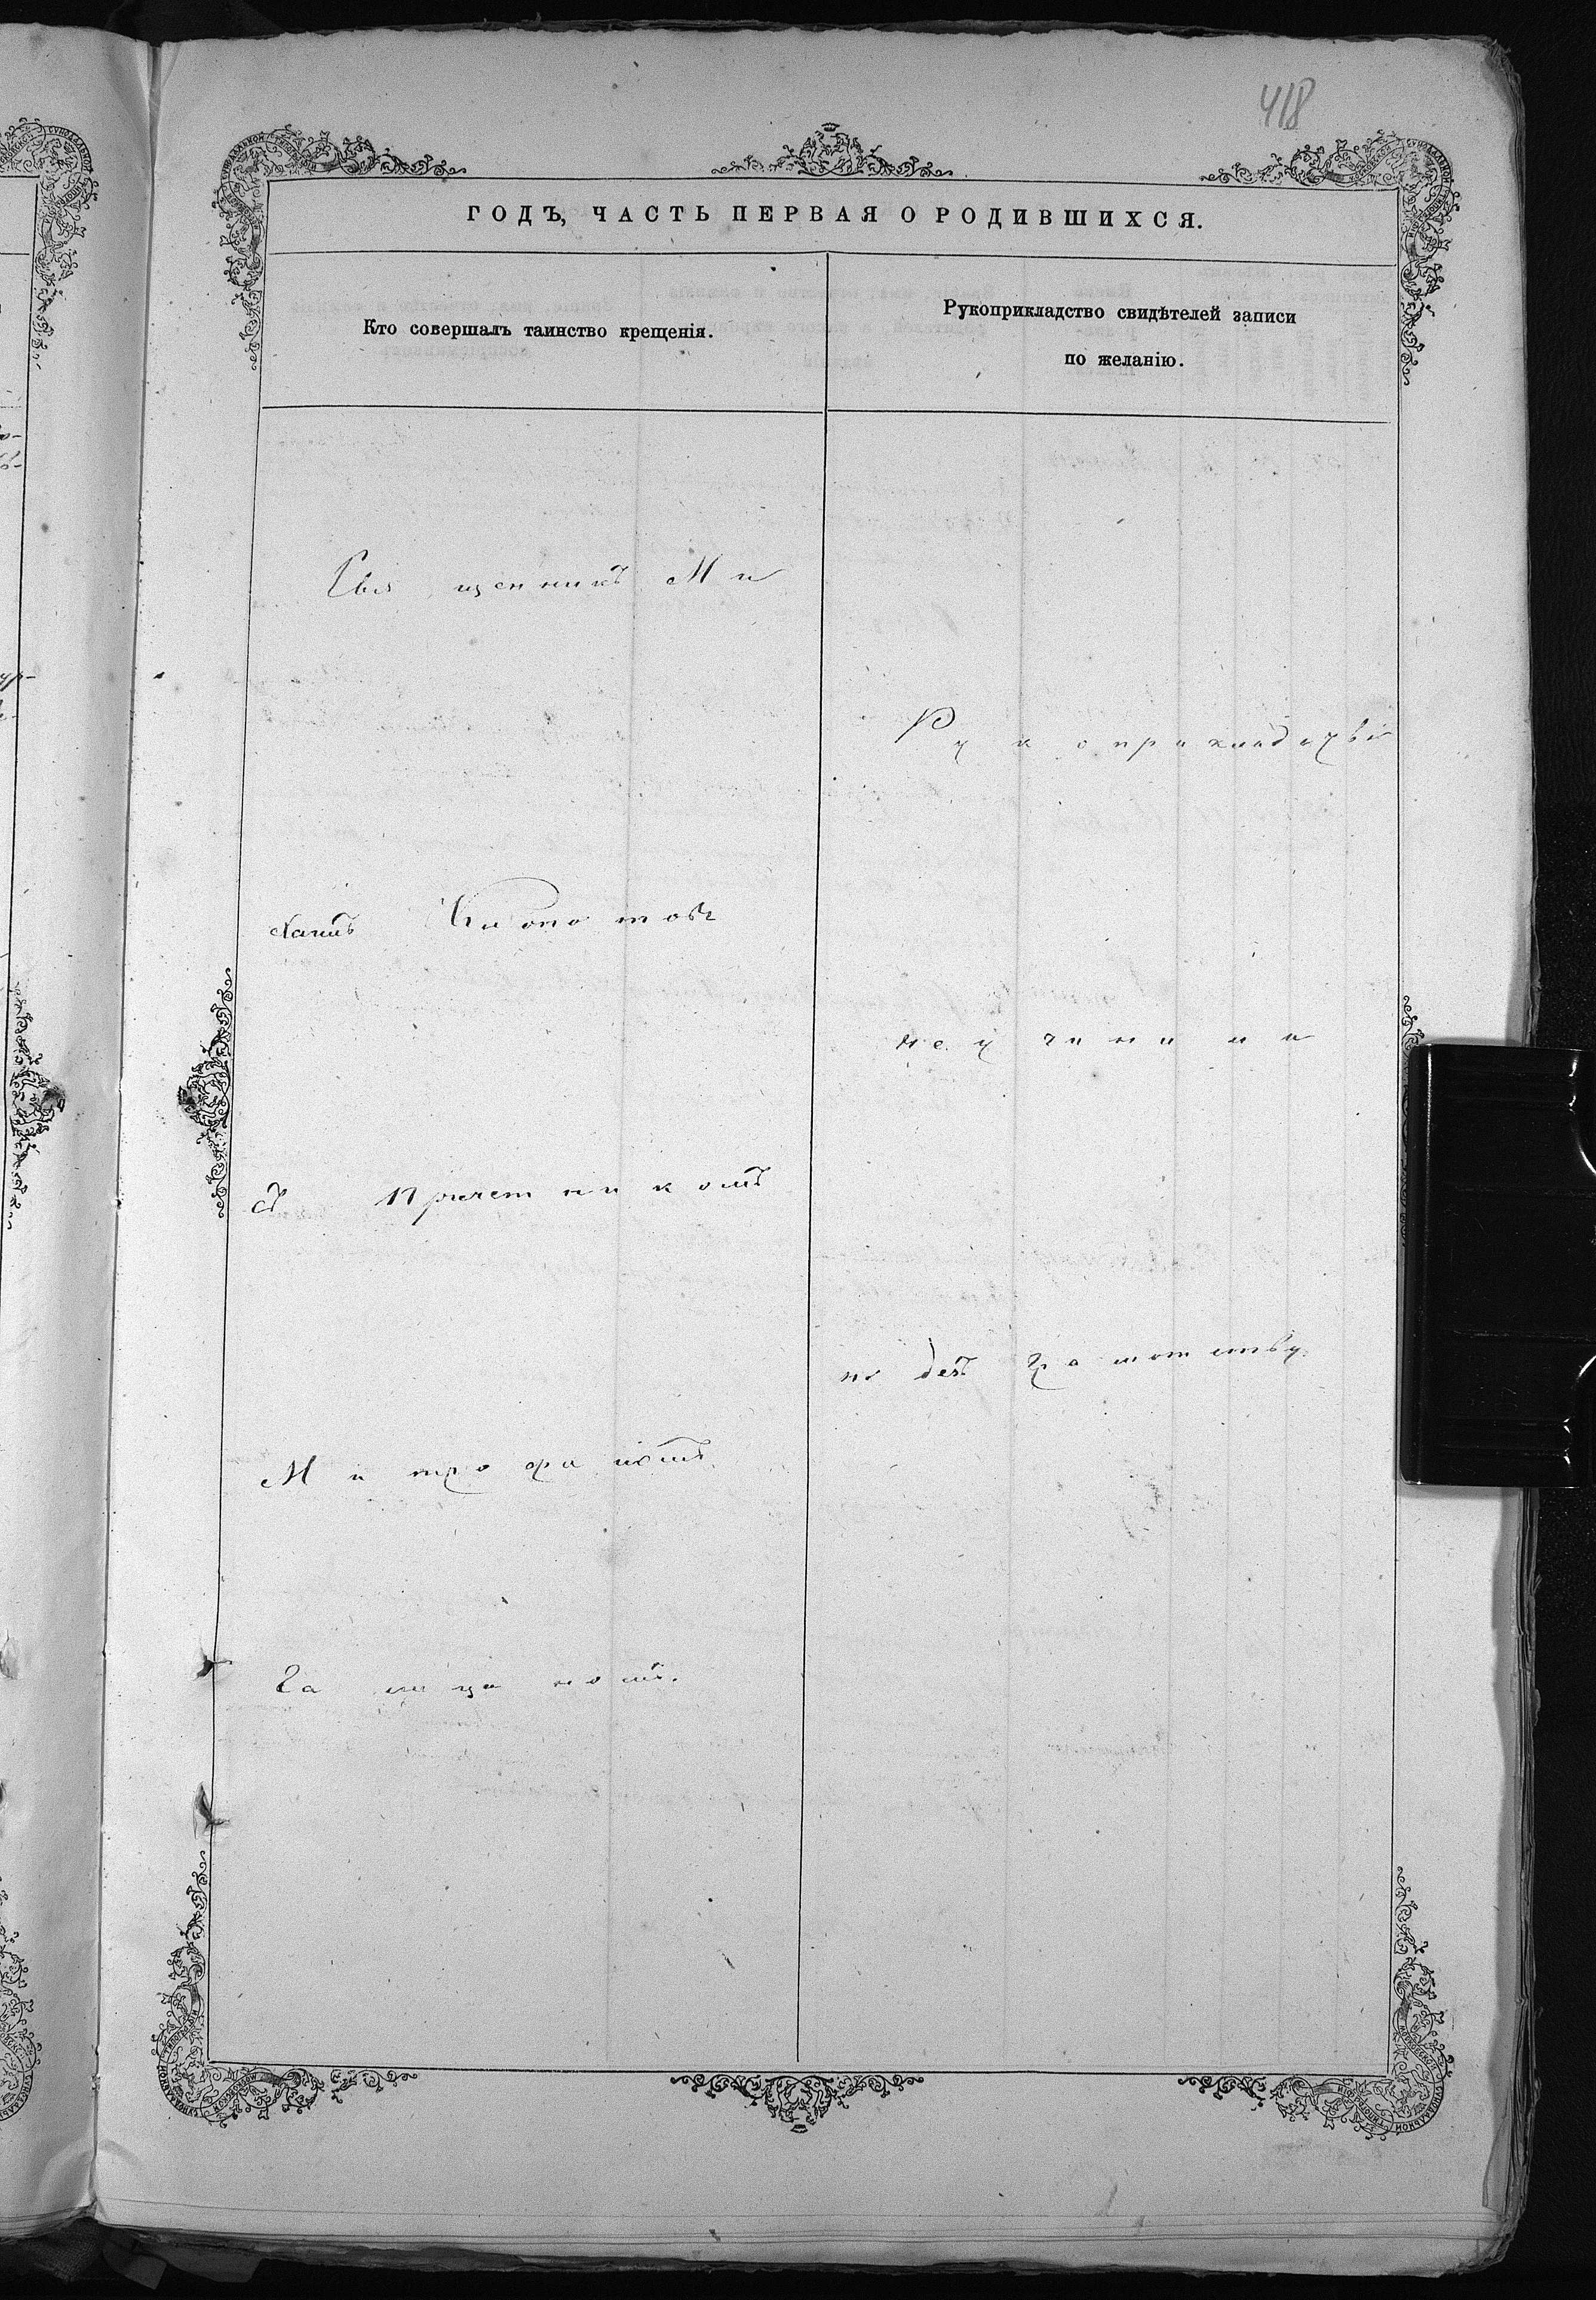 418
ГОДЪ, ЧАСТЬ ПЕРВАЯ О РОДИВШИХСЯ.
Кто совершалъ таинство крещенія.
Рукоприкладство свидѣтелей записи
по желанію.
Священникъ Ми
хаилъ
съ причетникомъ
Митрофаномъ
Рукоприкладству
неучинили
по безграмотству